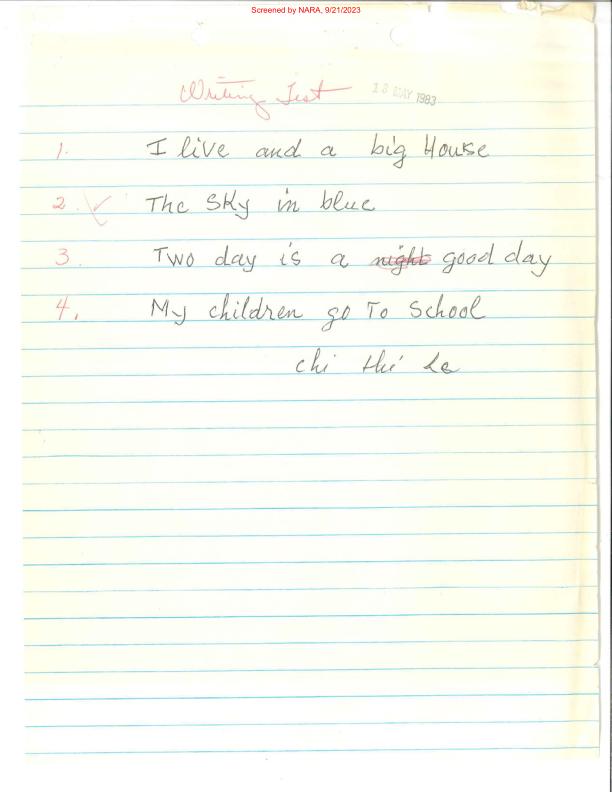 Screened by NARA, 9/21/2023
Writing Test 13 MAY 1983
1. I live and a big House
2. The Sky in blue
3. Two day is a night good day
4. My children go To School
chi thi Le